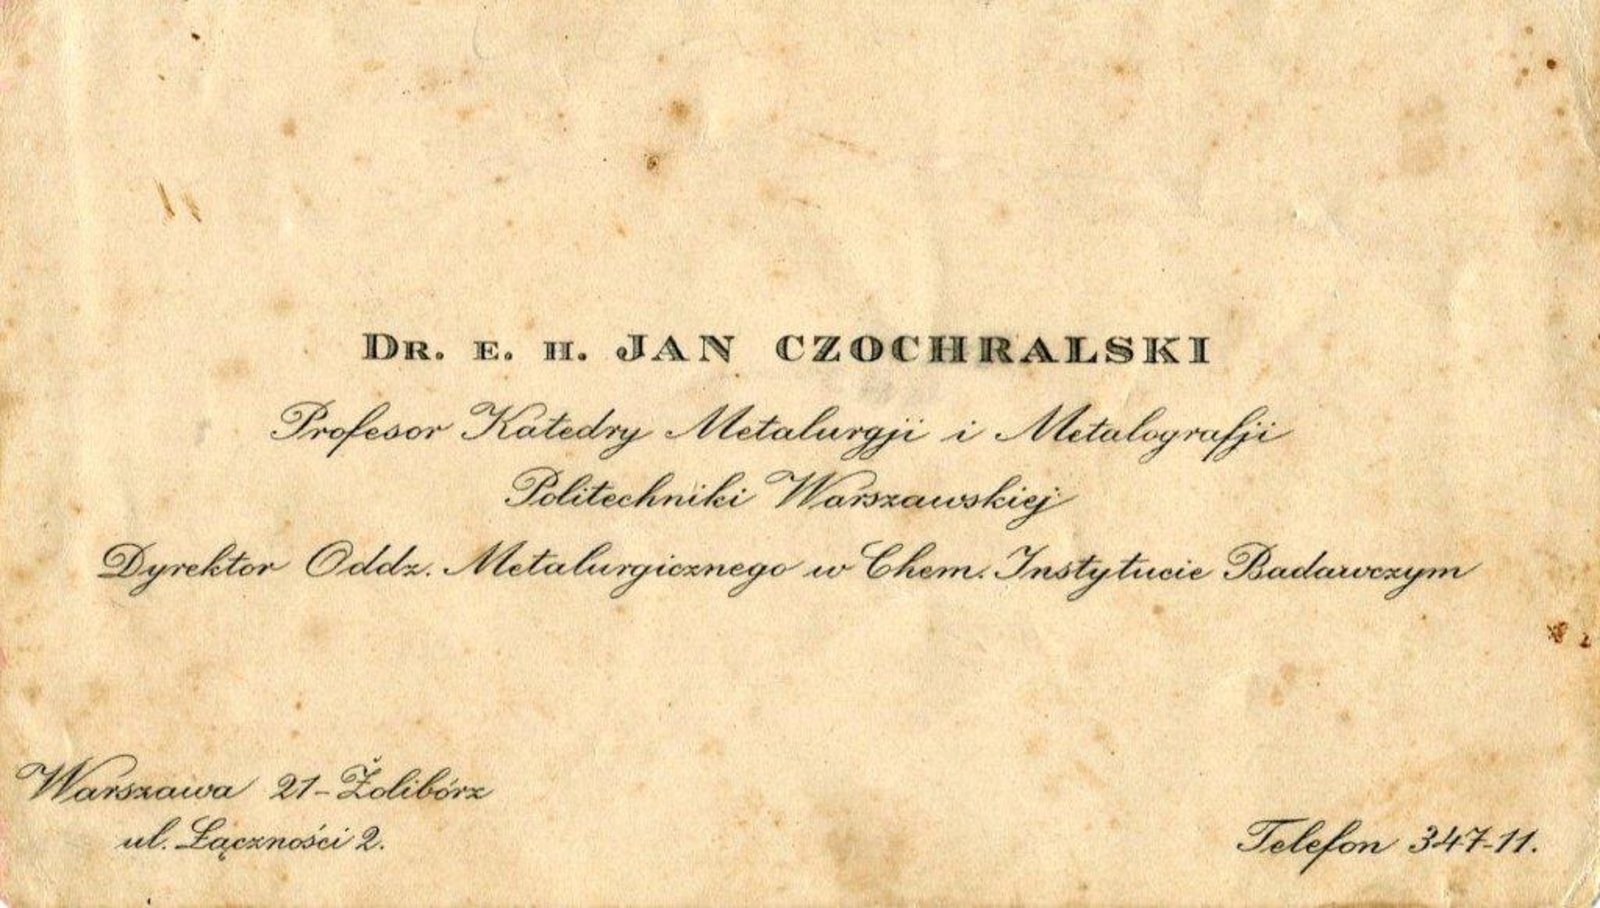 DR. E. H. JAN CZOCHRALSKI
Profesor Katedry Metalurgji i Metalografji
Politechniki Warszawskiej
Dyrektor Oddz. Metalurgicznego w Chem. Instytucie Badawczym
Warszawa 21-Żolibórz
ul. Łączności 2.
Telefon 347-11.